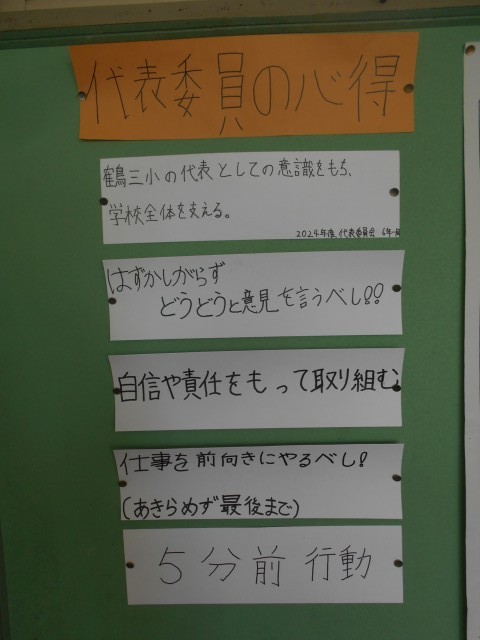 代表委員の心得
鶴三小の代表としての意識をもち、
学校全体を支える。
2024年度 代表委員会 6年一同
はずかしがらず
どうどうと意見を言うべし!!
自信や責任をもって取り組む
仕事を前向きにやるべし!
(あきらめず最後まで)
5分前行動